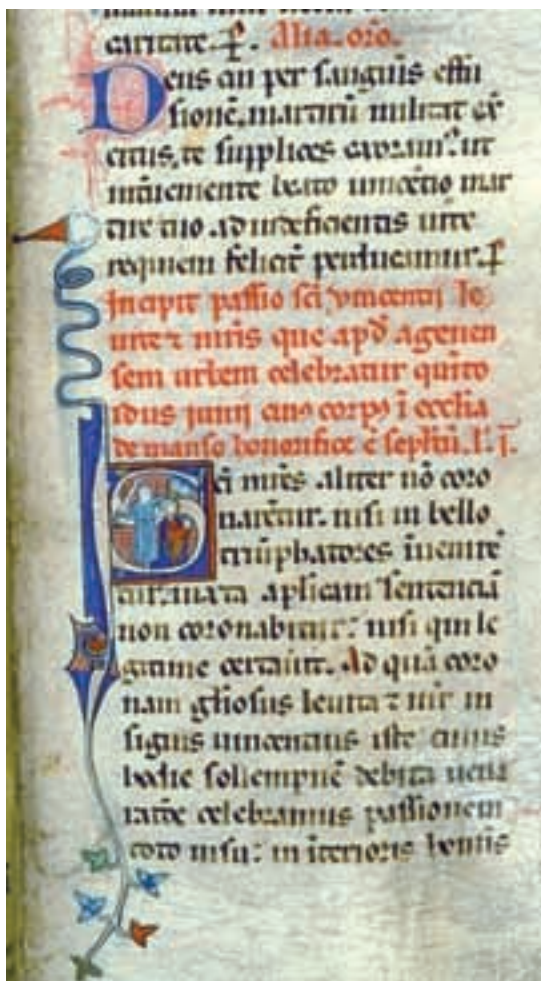 caritate. P. Alia. oro.
Deus cui per sanguīs effu
sionē, martirū militat exer
citus, te supplices exoram⁹. ut
int̄ueniente beato uincētio mar
tire tuo. ad indeficientis uite
requiem felicit̄ perducamur. P
Incipit passio sc̄i vincentij le
uite ⁊ mr̄is que apd̄ agenen
sem urbem celebratur quīto
idus junij cui⁹ corp⁹ ī ecc̄lia
de manso honorifice ē sepltū. l. j.
Sc̄i mr̄es aliter nō coro
narētur. nisi in bello
triūphatores īuenirē
tur. iuxta aplicam sentenciā
non coronabitur: nisi qui le
gitime certauit. Ad quā coro
nam gl̄iosus leuita ⁊ uir in
signis uincencius iste cuius
hodie sollempnē debita uene
ratōe celebramus passionem
toto nisu: in īterioris hoīnis